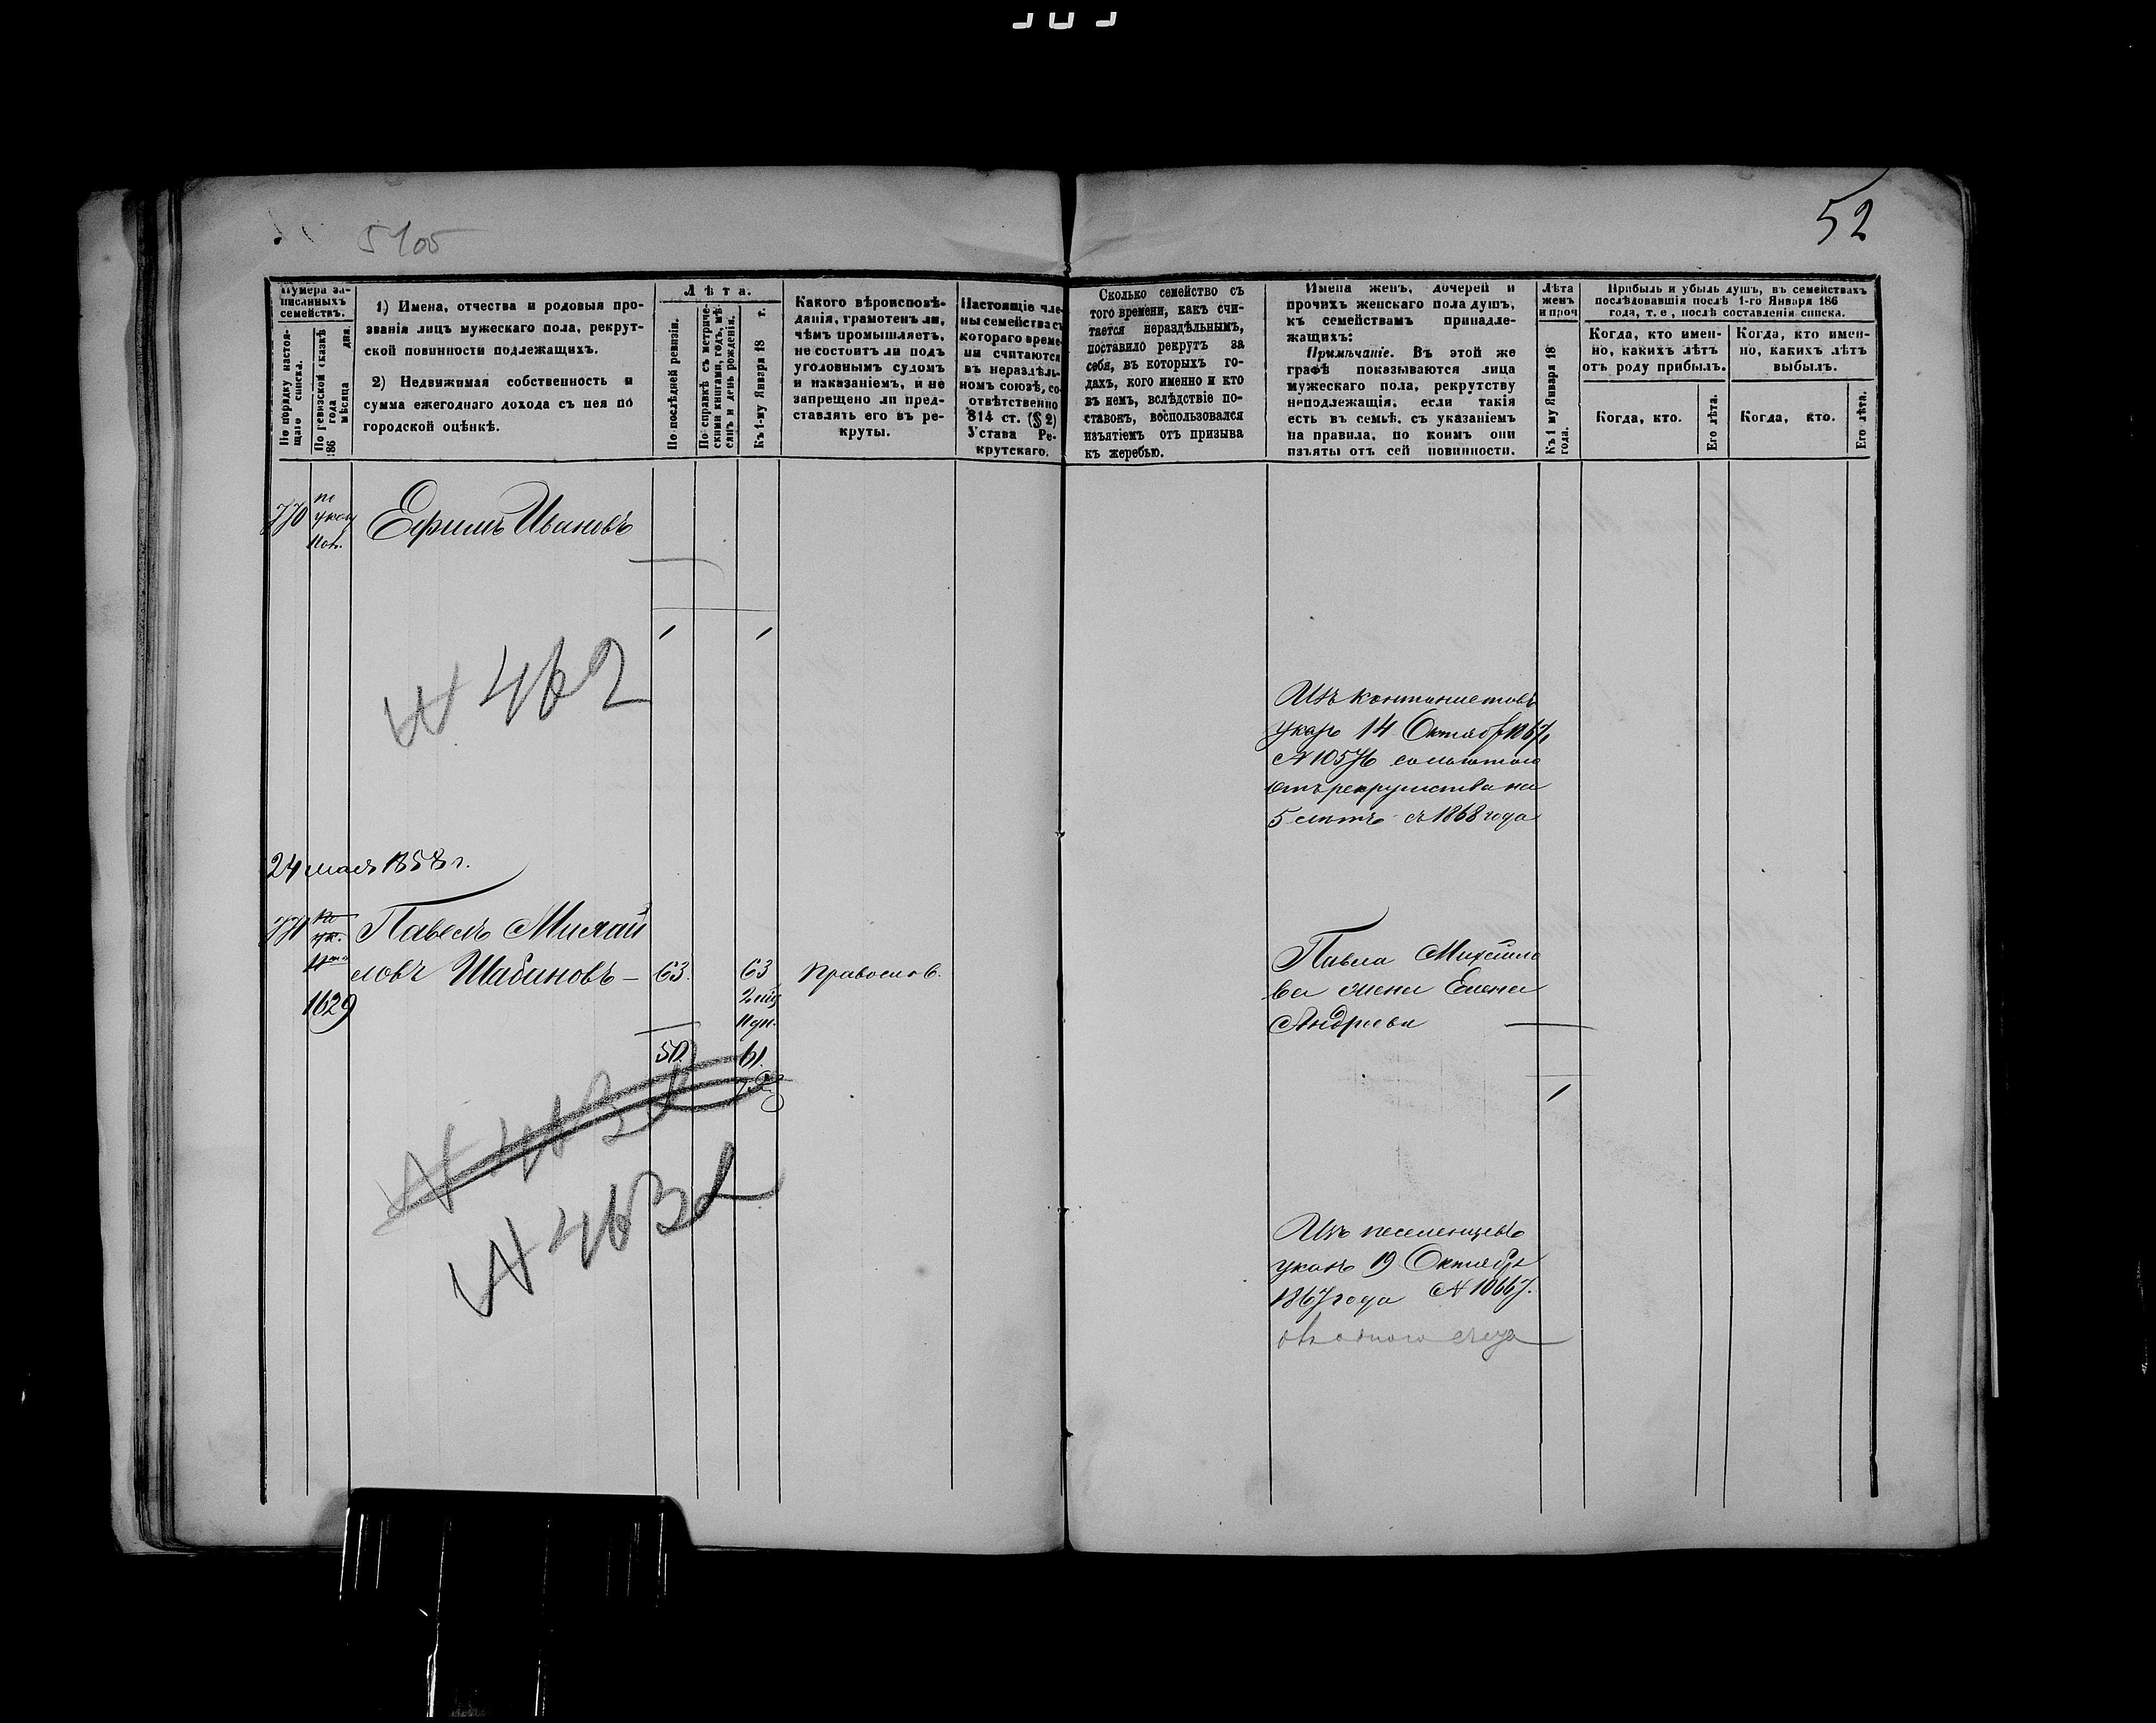 52
5705
Нумера за-
писанныхъ
семействъ.
По порядку настоя-
щаго списка.
По ревизской сказкѣ
186 года
мѣсяца дня.
1) Имена, отчества и родовыя про-
званія лицъ мужескаго пола, рекрут-
ской повинности подлежащихъ.
2) Недвижимая собственность и
сумма ежегоднаго дохода съ нея по
городской оцѣнкѣ.
Лѣта.
По послѣдней ревизіи.
По справкѣ съ метриче-
скими книгами, годъ, мѣ-
сяцъ и день рожденія.
Къ 1-му Января 18 г.
Какого вѣроисповѣ-
данія, грамотенъ ли,
чѣмъ промышляетъ,
не состоитъ ли подъ
уголовнымъ судомъ
и наказаніемъ, и не
запрещено ли пред-
ставлять его въ ре-
круты.
Настоящіе чле-
ны семейства съ
котораго време-
ни считаются
въ нераздѣль-
номъ союзѣ, со-
отвѣтственно
814 ст. (§ 2)
Устава Ре-
крутскаго.
Сколько семейство съ
того времени, какъ счи-
тается нераздѣльнымъ,
поставило рекрутъ за
себя, въ которыхъ го-
дахъ, кого именно и кто
въ немъ, вслѣдствіе по-
ставокъ, воспользовался
изъятіемъ отъ призыва
къ жеребью.
Имена женъ, дочерей и
прочихъ женскаго пола душъ,
къ семействамъ принадле-
жащихъ:
Примѣчаніе. Въ этой же
графѣ показываются лица
мужескаго пола, рекрутству
неподлежащія, если такія
есть въ семьѣ, съ указаніемъ
на правила, по коимъ они
изъяты отъ сей повинности.
Лѣта
женъ
и проч
Къ 1 му Января 18
года.
Прибыль и убыль душъ, въ семействахъ
послѣдовавшія послѣ 1-го Января 186
года, т. е., послѣ составленія списка.
Когда, кто имен-
но, какихъ лѣтъ
отъ роду прибылъ.
Когда, кто имен-
но, какихъ лѣтъ
выбылъ.
Когда, кто.
Его лѣта.
Когда, кто.
Его лѣта.
770
по
указу
Ефимъ Ивановъ
1 1
N 462
Изъ кантонистовъ
указъ 14 Октяб 1867
N 10576 со льготою
отъ рекрутства на
5 лѣтъ съ 1868 года
24 мая 1858 г.
771
по
ук.
1629
Павелъ Михай
ловъ Шабиновъ —
63.
63
Правослов.
50.
61.
N 463
N 463
Павла Михайло
ва жена Елена
Андреева
1
Изъ поселенцевъ
указъ 19 Октября
1867 года N 10667.